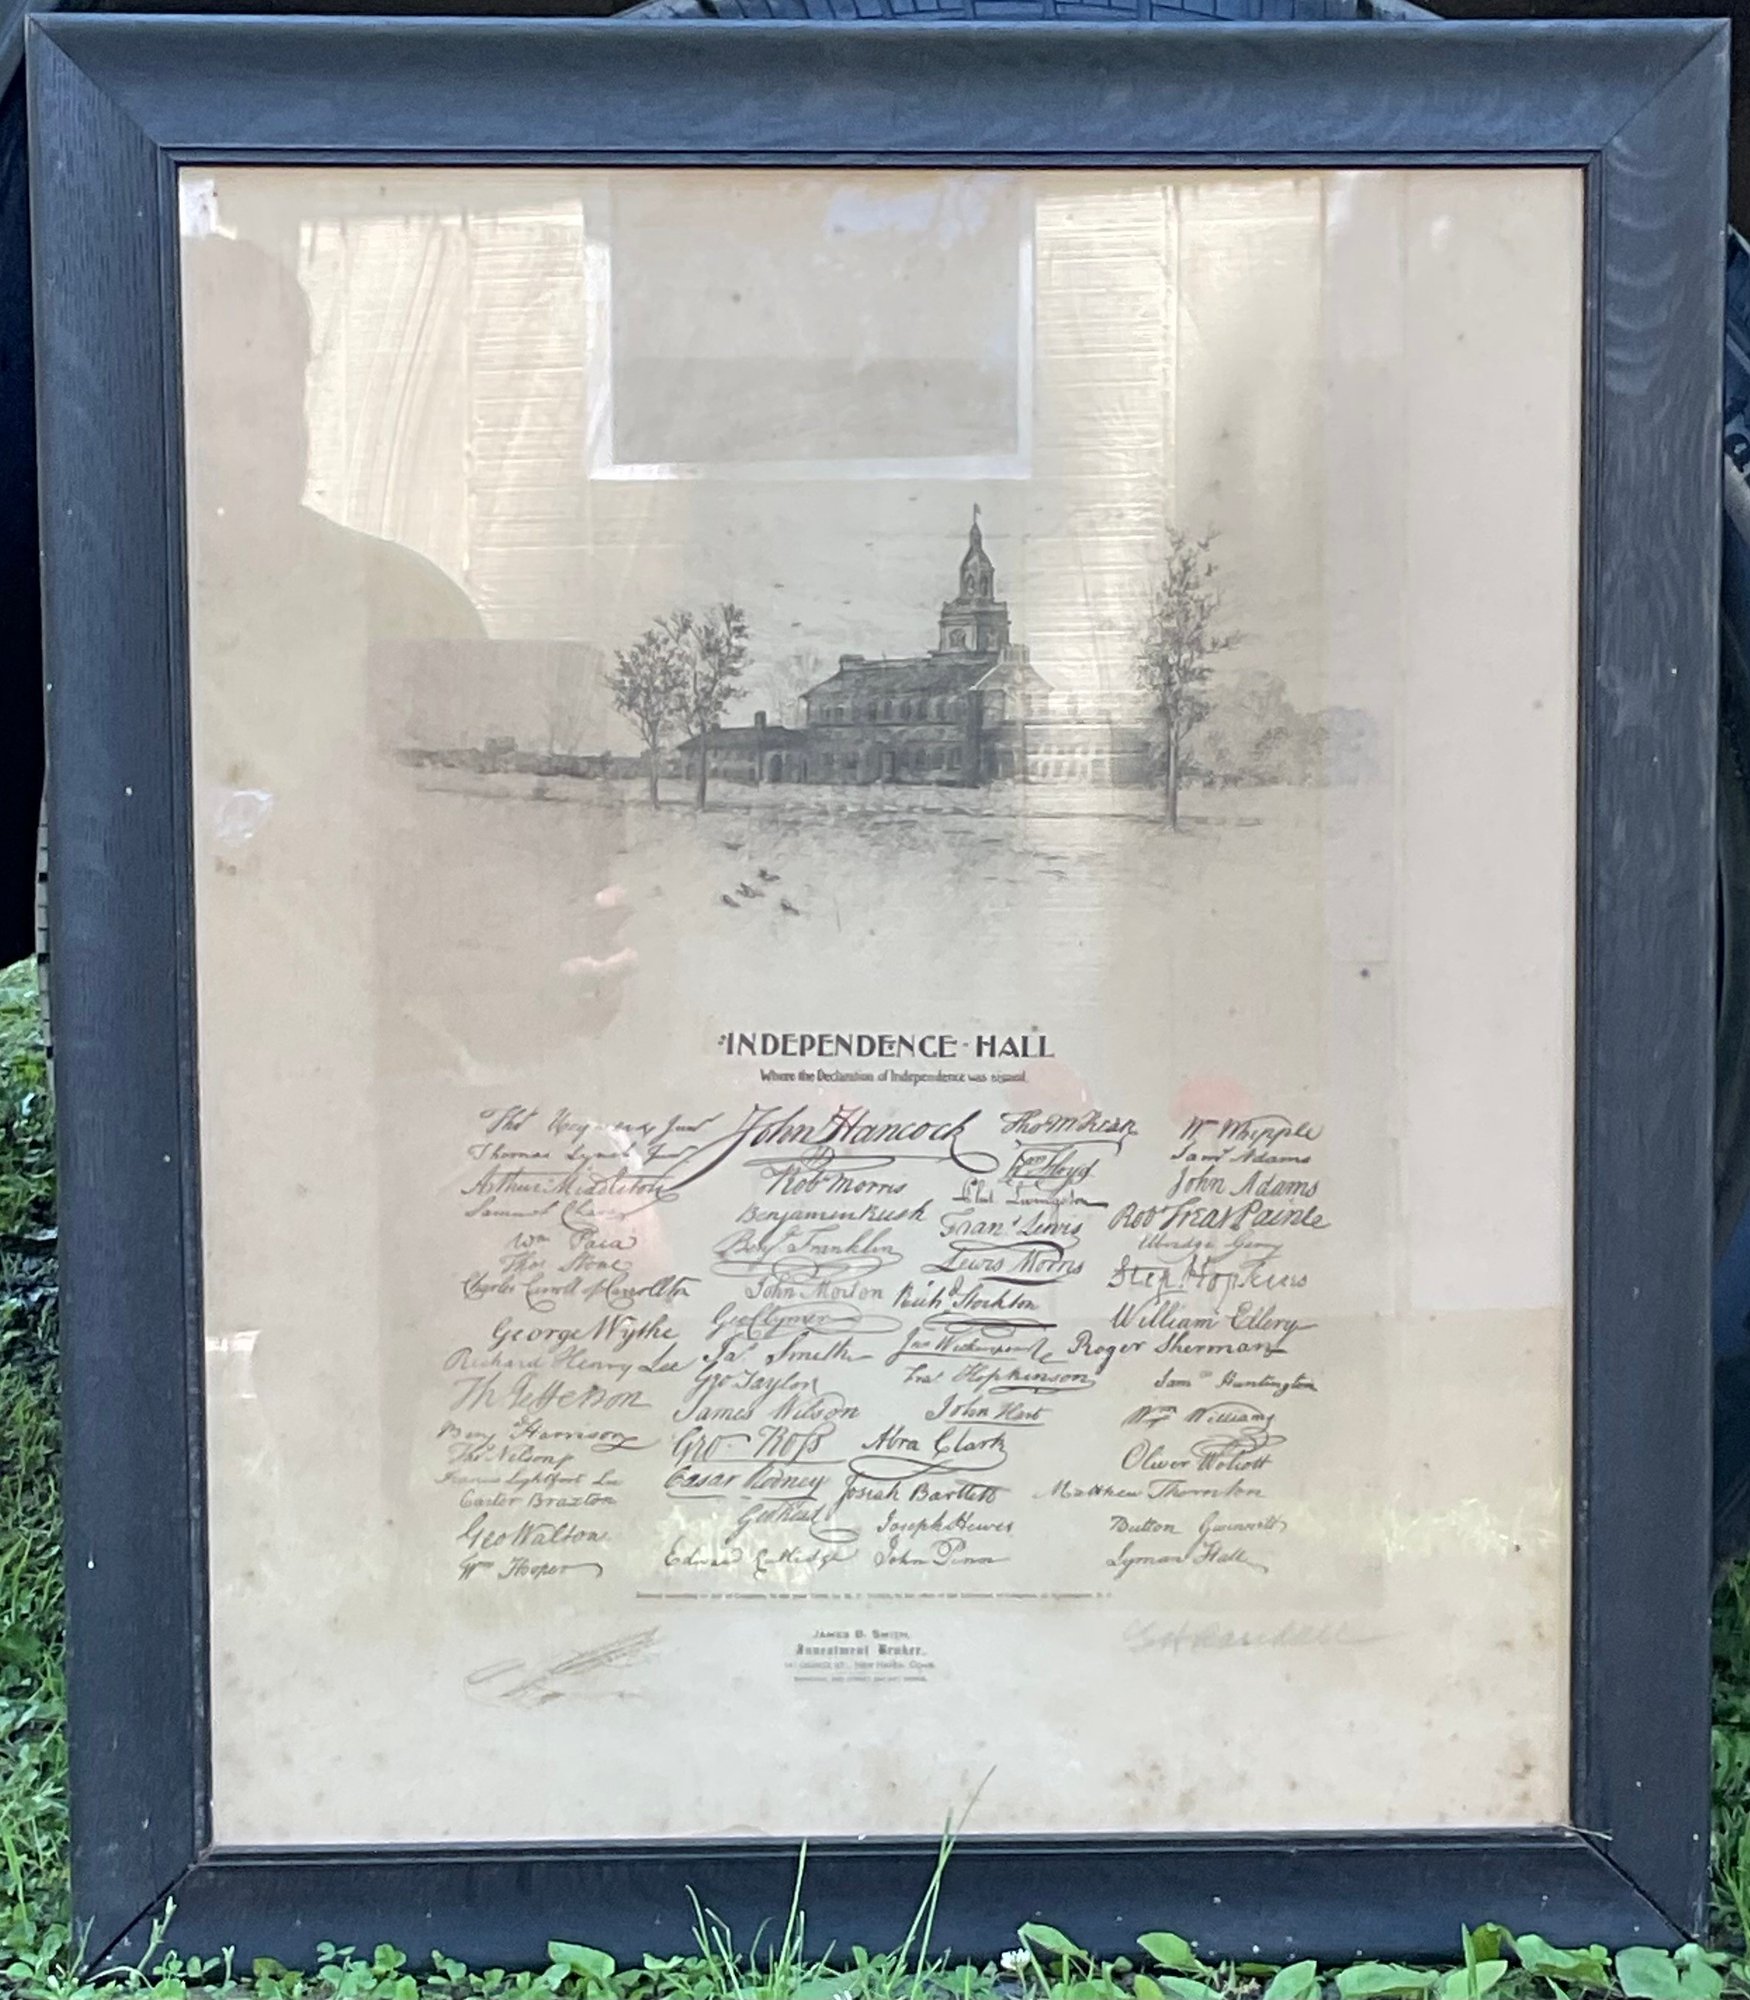 INDEPENDENCE · HALL
Where the Declaration of Independence was signed.
Thos Heyward Junr. John Hancock Tho M:Kean Wm Whipple
Thomas Lynch Junr. Saml Adams
Arthur Middleton Robt Morris Wm Floyd John Adams
Samuel Chase Benjamin Rush Phil. Livingston Robt Treat Paine
Wm Paca Benj. Franklin Frans. Lewis Elbridge Gerry
Thos Stone Lewis Morris Step. Hopkins
Charles Carroll of Carrollton John Morton Richd Stockton William Ellery
George Wythe Geo Clymer Jno Witherspoon Roger Sherman
Richard Henry Lee Jas. Smith Fras. Hopkinson Saml Huntington
Th Jefferson Geo Taylor John Hart Wm Williams
Benj Harrison James Wilson Abra Clark Oliver Wolcott
Thos Nelson jr Geo. Ross
Francis Lightfoot Lee Cæsar Rodney Josiah Bartlett Matthew Thornton
Carter Braxton Geo Read
Geo Walton Joseph Hewes Button Gwinnett
Wm Hooper Edward Rutledge John Penn Lyman Hall
JAMES B. SMITH,
Investment Broker,
NEW HAVEN, CONN.